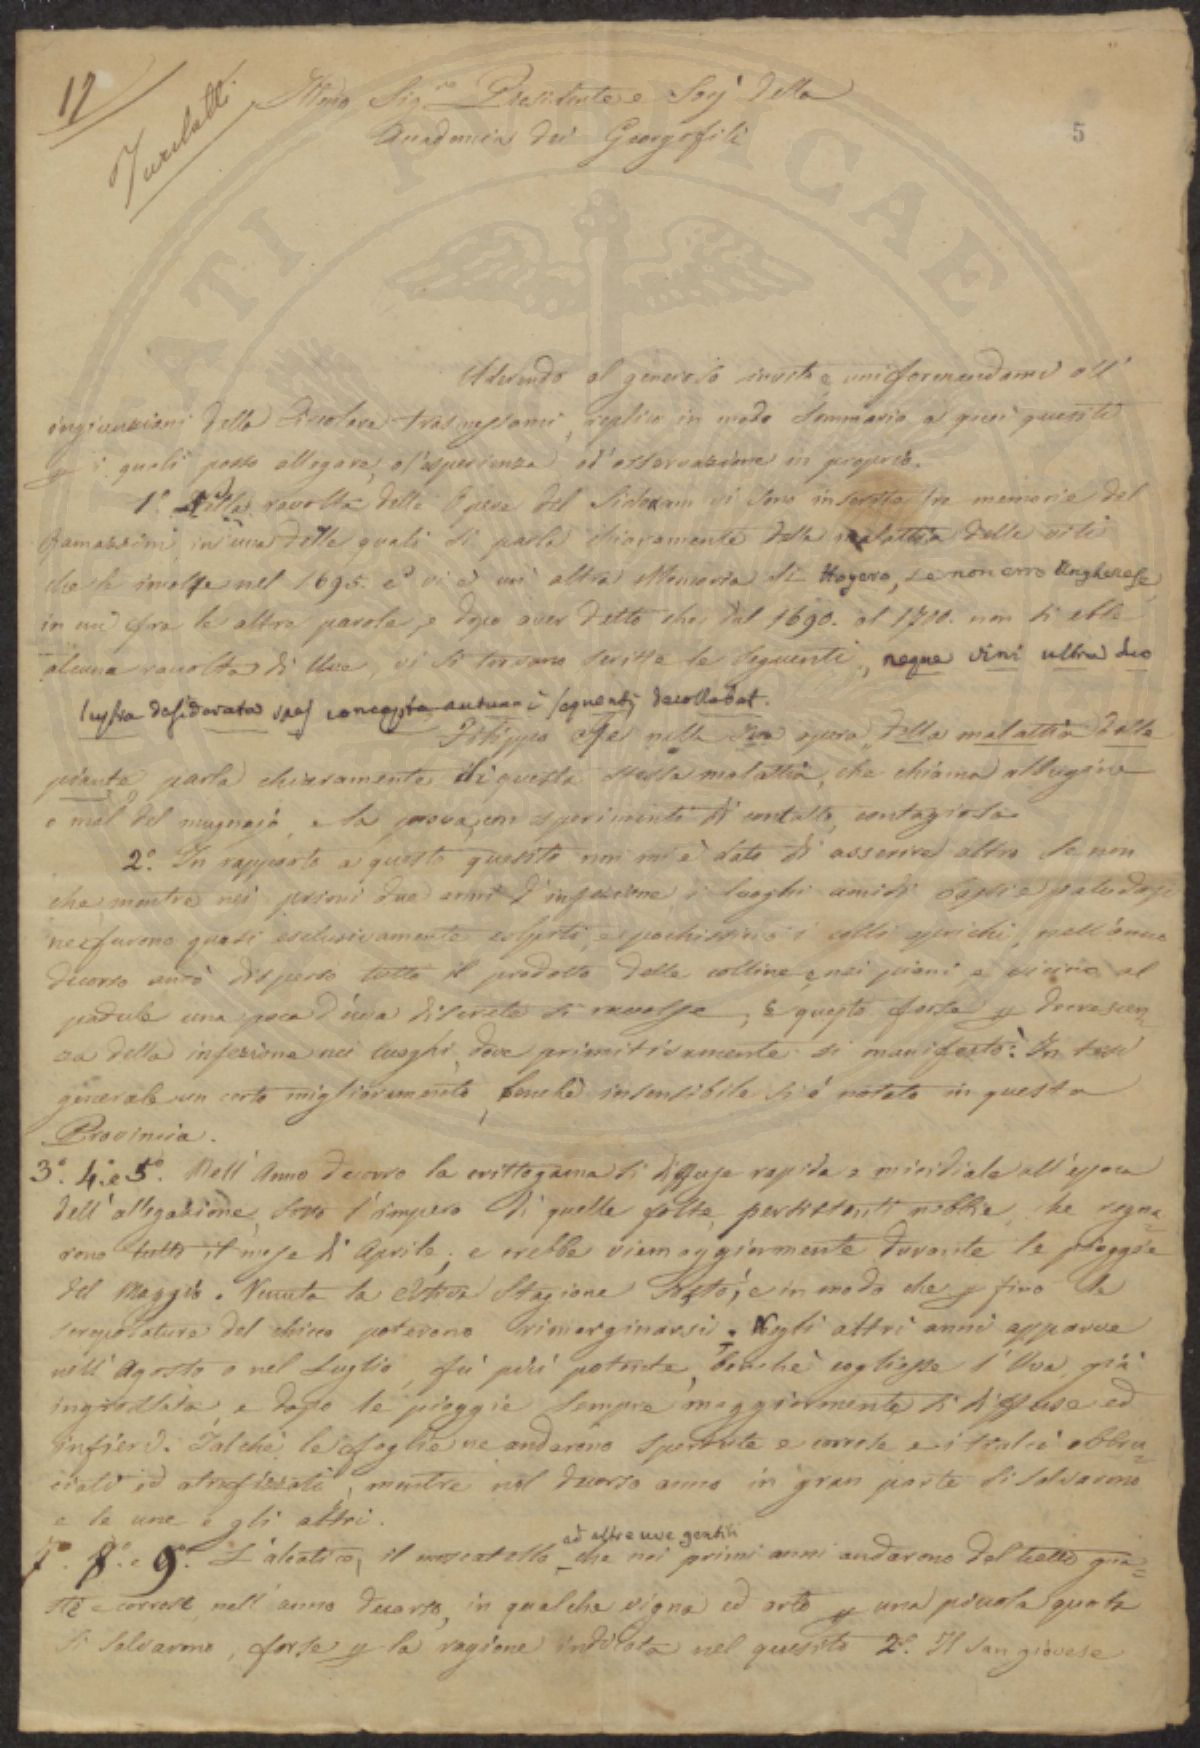 12
5
Illmo Sig.re Presidente e Socj della
Accademia dei Georgofili
Aderendo al generoso invito e uniformandomi all'
ingiunzioni della Circolare trasmessami, replico in modo sommario a quei quesiti
p i quali posso allegare, o l'esperienza od'osservazione in proprio.
1.° Nella raccolta delle Opere del Sidenam vi sono inserite tre memorie del
Ramazzini in una delle quali si parla chiaramente della malattia delle viti
che le invase nel 1695. e vi è un' altra Memoria di Hoyero, se non erro Ungherese,
in cui fra le altre parole, e dopo aver detto che dal 1690. al 1700. non si ebbe
alcuna raccolta di Uve, vi si trovano scritte le seguenti, neque vini ultra duo
lustra desiderata spes concepta autumni sequentis decollabat.
Filippo Re nella sua opera della malattia delle
piante parla chiaramente di questa stessa malattia, che chiama albugine
o mal del mugnajo, e la prova, con esperimenti di contatto, contagiosa.
2.° In rapporto a questo quesito non mi è dato di asserire altro se non
che, mentre nei primi due anni d'infezione i luoghi umidi bassi e paludosi
ne furono quasi esclusivamente colpiti, e pochissimo i colli aprichi, nell'anno
decorso andò disperso tutto il prodotto delle colline, e nei piani, e vicino al
padule una poca d'uva discreta si raccolse, e questo forse p decrescen=
za della infezione nei luoghi, dove primitivamente si manifestò: In tesi
generale un certo miglioramento, benchè insensibile si è notato in questa
Provincia.
3.° 4.° e 5.° Nell' Anno decorso la crittogama si diffuse rapida e micidiale all'epoca
dell'allegazione, sotto l'impero di quelle folte, persistenti nebbie, che regna=
rono tutto il mese di Aprile; e crebbe viemaggiormente durante le pioggie
del Maggio. Venuta la estiva Stagione restò, e in modo che p fino le
screpolature del chicco poterono rimarginarsi. Negli altri anni apparve
nell' Agosto o nel Luglio, fù più potente, benchè cogliesse l'Uva già
ingrossata, e dopo le pioggie sempre maggiormente si diffuse ed
infierì. Talchè le foglie ne andarono sperdute e corrose e i tralci abbru=
ciati ed atrofizzati, mentre nel decorso anno in gran parte si salvarono
e le une e gli altri.
7.° 8.° e 9.° L'aleatico, il moscatello ed altre uve gentili che nei primi anni andarono del tutto gua=
ste e corrose, nell'anno decorso, in qualche vigna ed orto p una piccola quota
si salvarono, forse p la ragione indicata nel quesito 2.° Il San giovese